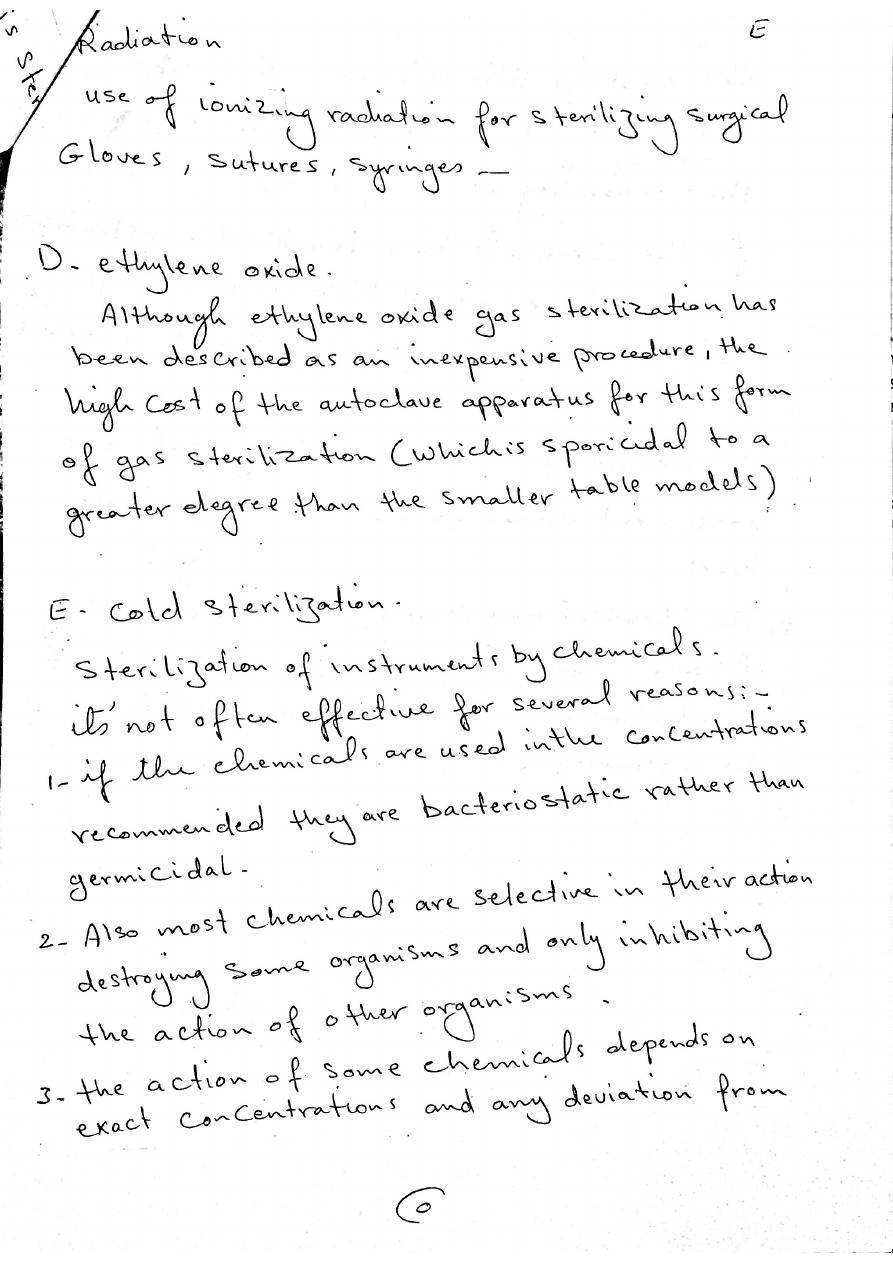 E
is Ster
Radiation
use of ionizing radiation for sterilizing surgical
Gloves, sutures, syringes —
D- ethylene oxide.
Although ethylene oxide gas sterilization has
been described as an inexpensive procedure, the
high cost of the autoclave apparatus for this form
of gas sterilization (which is sporicidal to a
greater degree than the smaller table models)
E- cold sterilization.
Sterilization of instruments by chemicals.
it's not often effective for several reasons:-
1- if the chemicals are used in the concentrations
recommended they are bacteriostatic rather than
germicidal.
2- Also most chemicals are selective in their action
destroying some organisms and only inhibiting
the action of other organisms.
3- the action of some chemicals depends on
exact concentrations and any deviation from